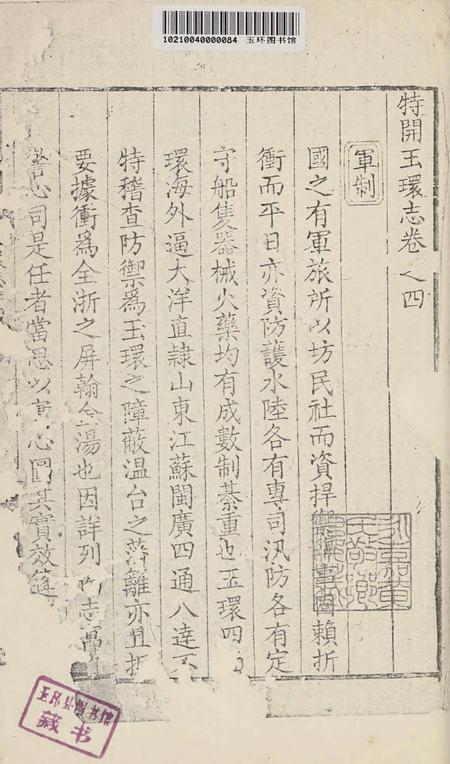 10210040000084 玉环图书馆
特開玉環志卷之四
軍制
國之有軍旅所以坊民社而資捍禦 賴折
衝而平日亦資防護水陸各有專司汛防各有定
守船隻器械火藥均有成數制綦重也玉環四
環海外逼大洋直隷山東江蘇閩廣四通八達不
特稽查防禦為玉環之障蔽温台之藩離亦且扼
要據衝為全浙之屏翰金湯也因詳列 志
心司是任者當思以實心圖其實效
玉环县图书馆
藏书